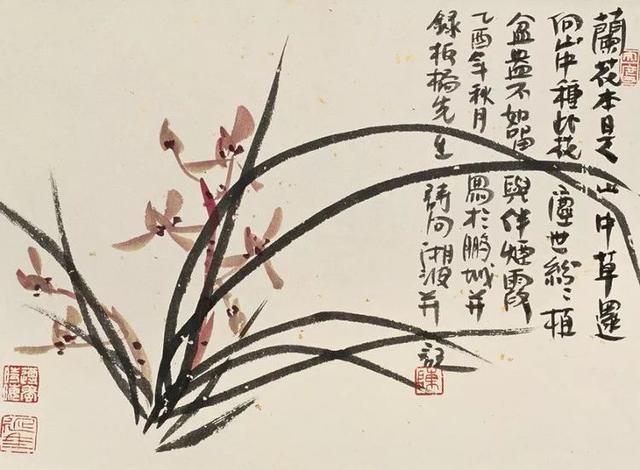 蘭花本是山中草還
向山中種此花塵世紛〻植
盆盎不如留與伴煙霞
乙酉年秋月寫於鵬城并
録板橋先生詩句湘波并記
陳